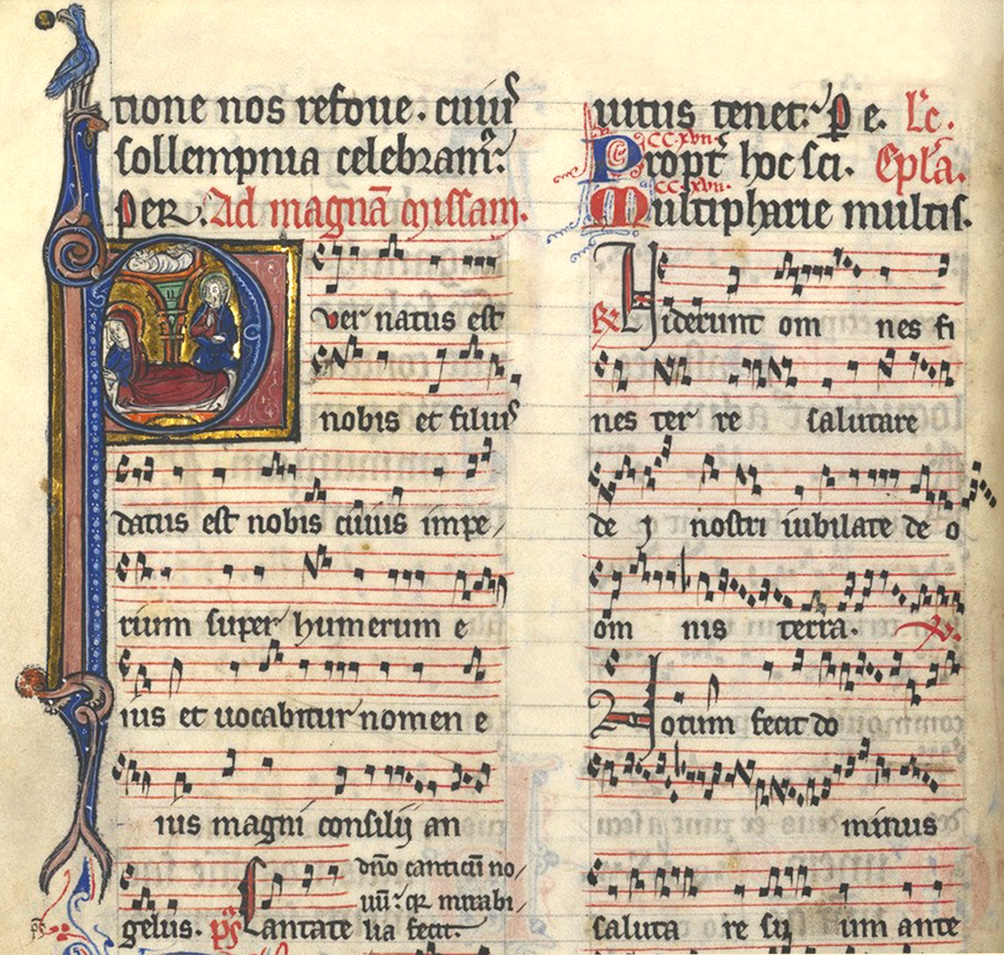 tione nos refoue. cuiuſ
sollempnia celebram᷒:
per. Ad magnā missam.
Puer natus est
nobis et filiuſ
datus est nobis cuius impe/
rium super humerum e
ius et uocabitur nomen e
ius magni consilij an
gelus. ps Cantate dn̄o canticū no/
uū: qr mirabi/
lia fecit.
ps
uitus tenet: Pe. Lc̄.
CC.xvii.
Propt̄ hoc sci. Epl̄a.
CC.xvii.
Multipharie multis.
R Viderunt om nes fi
nes ter re salutare
de i nostri iubilate de o
om nis terra. V.
Notum fecit do
minus
saluta re su um ante